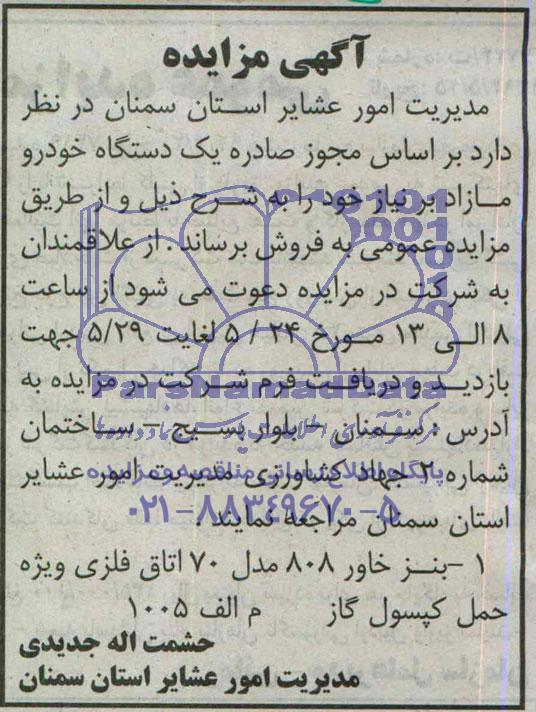 آگهی مزایده
مدیریت امور عشایر استان سمنان در نظر
دارد بر اساس مجوز صادره یک دستگاه خودرو
مازاد بر نیاز خود را به شرح ذیل و از طریق
مزایده عمومی به فروش برساند . از علاقمندان
به شرکت در مزایده دعوت می شود از ساعت
۸ الی ۱۳ مورخ ۲۴ / ۵ لغایت ۵/۲۹ جهت
بازدید و دریافت فرم شرکت در مزایده به
آدرس : سمنان – بلوار بسیج – ساختمان
شماره ۲ جهاد کشاورزی مدیریت امور عشایر
استان سمنان مراجعه نمایند .
۱ –بنز خاور ۸۰۸ مدل ۷۰ اتاق فلزی ویژه
حمل کپسول گاز م الف ۱۰۰۵
حشمت اله جدیدی
مدیریت امور عشایر استان سمنان
ParsNamadData
پایگاه اطلاع رسانی مناقصه و مزایده
۰۲۱-۸۸۳۴۹۶۷۰-۵